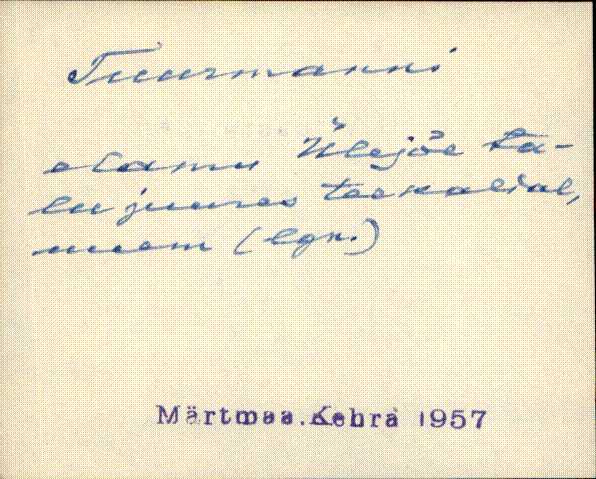 Tuurmanni
elamu Ülejõe ta-
lu juures teekäärul,
uuem (lgr.)
Märtmaa.Kehra 1957